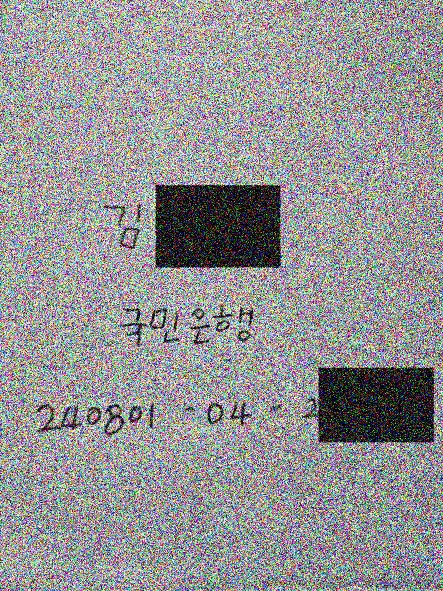 김
국민은행
240801 - 04 - 2